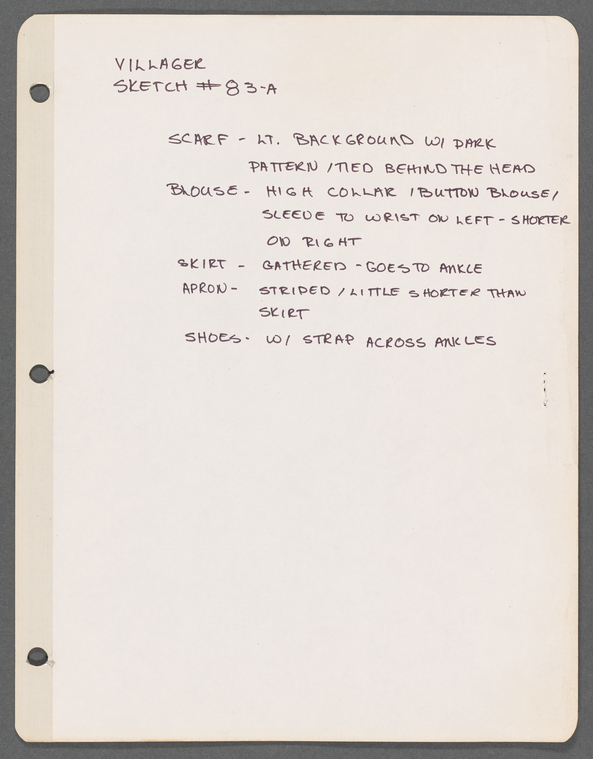 VILLAGER
SKETCH # 83-A
SCARF - LT. BACKGROUND W/ DARK
PATTERN / TIED BEHIND THE HEAD
BLOUSE - HIGH COLLAR / BUTTON BLOUSE /
SLEEVE TO WRIST ON LEFT - SHORTER
ON RIGHT
SKIRT - GATHERED - GOES TO ANKLE
APRON - STRIPED / LITTLE SHORTER THAN
SKIRT
SHOES - W/ STRAP ACROSS ANKLES